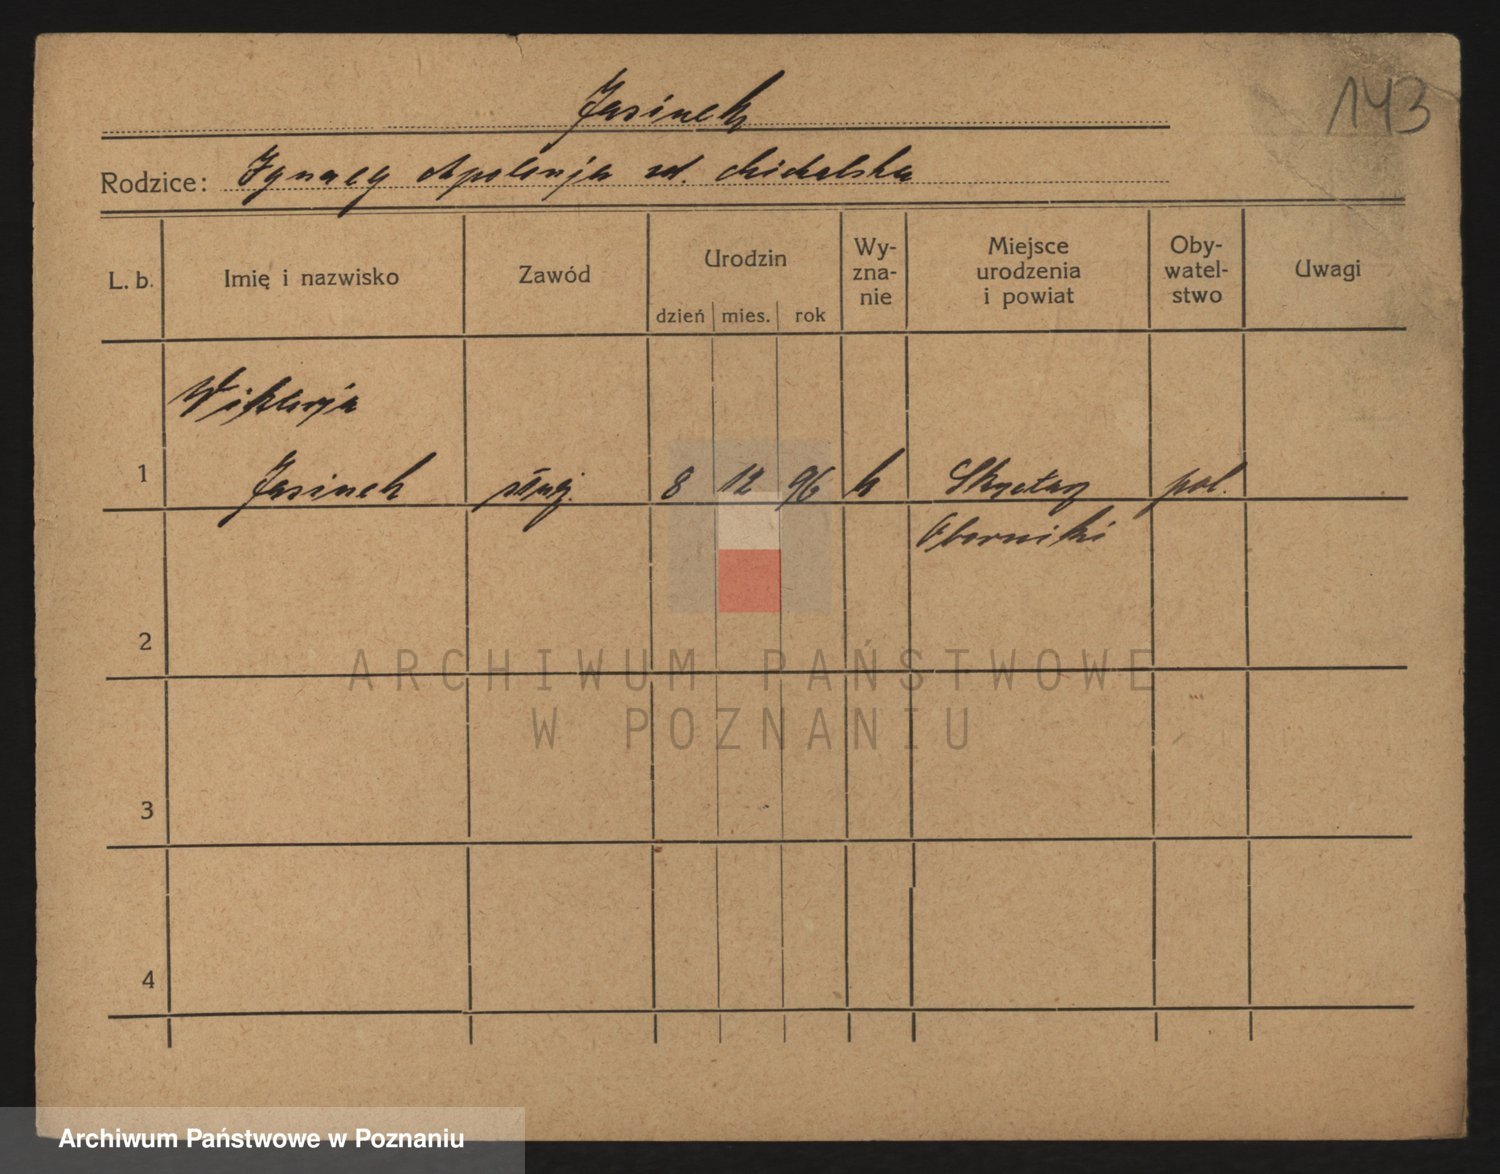 143
Jasinek
Rodzice: Ignacy Apolonja
L. b. Imię i nazwisko Zawód Urodzin dzień mies. rok Wy- zna- nie Miejsce urodzenia i powiat Oby- watel- stwo Uwagi
Wiktorja
1 Jasinek służ. 8 12 96 k pol.
Oborniki
2
ARCHIWUM PAŃSTWOWE
W POZNANIU
3
4
Archiwum Państwowe w Poznaniu